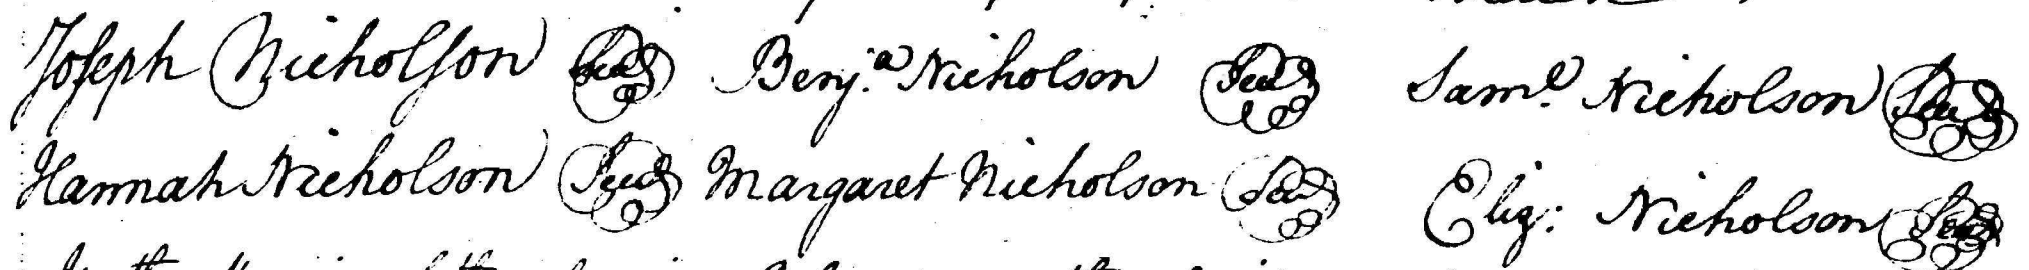 Joseph Nicholson Seal Benj.a Nicholson Seal Sam.l Nicholson Seal
Hannah Nicholson Seal Margaret Nicholson Seal Eliz: Nicholson Seal